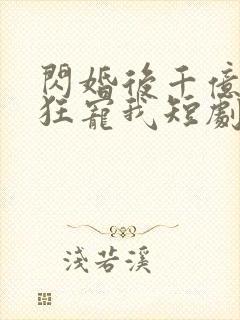 閃婚後千億
狂寵我短劇
淺若溪